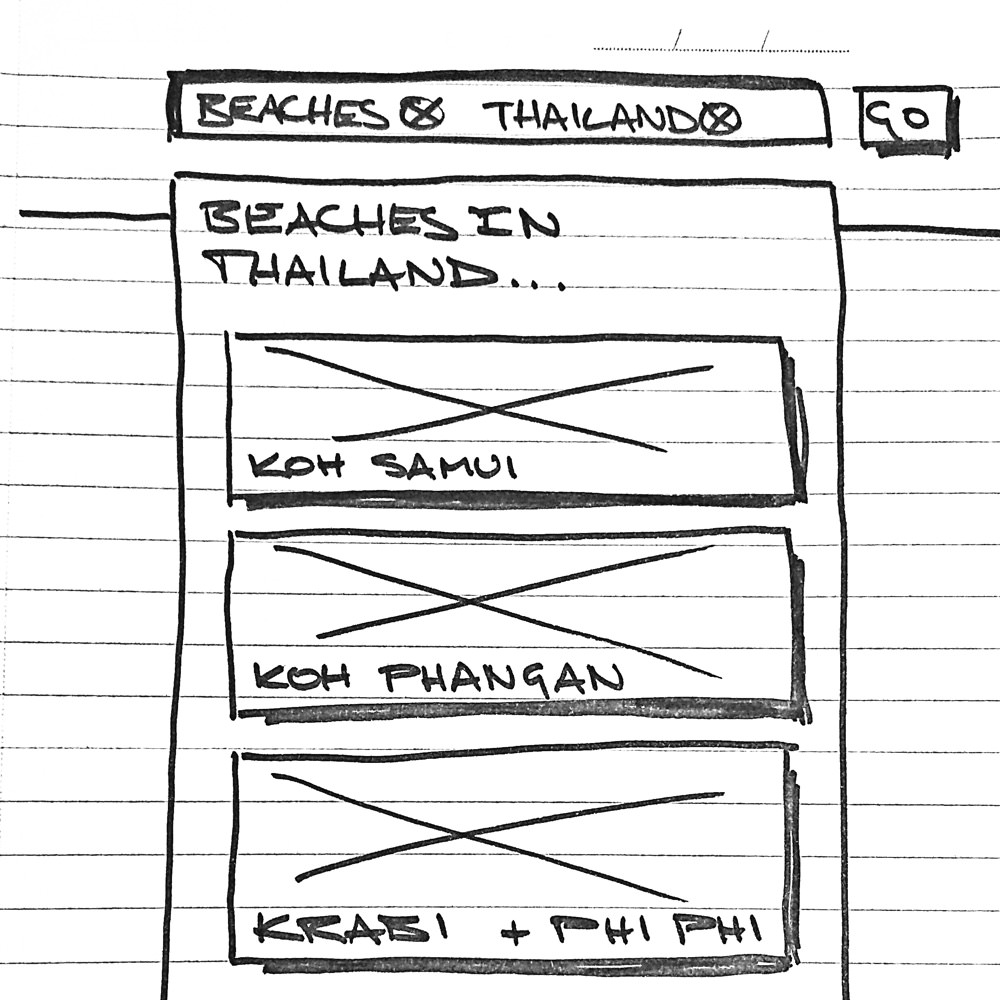 BEACHES ⓧ THAILAND ⓧ GO
BEACHES IN
THAILAND...
KOH SAMUI
KOH PHANGAN
KRABI + PHI PHI